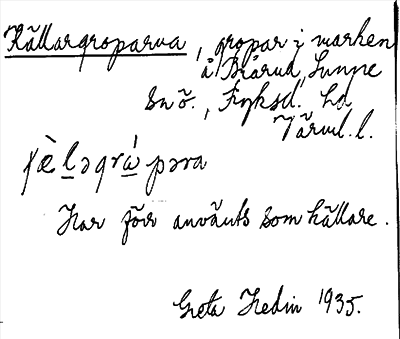 Källargroparna, gropar i marken
å Brårud, Sunne
sn ö., Fryksd. hd
Värml. l.
Har förr använts som källare.
Greta Hedin 1935.